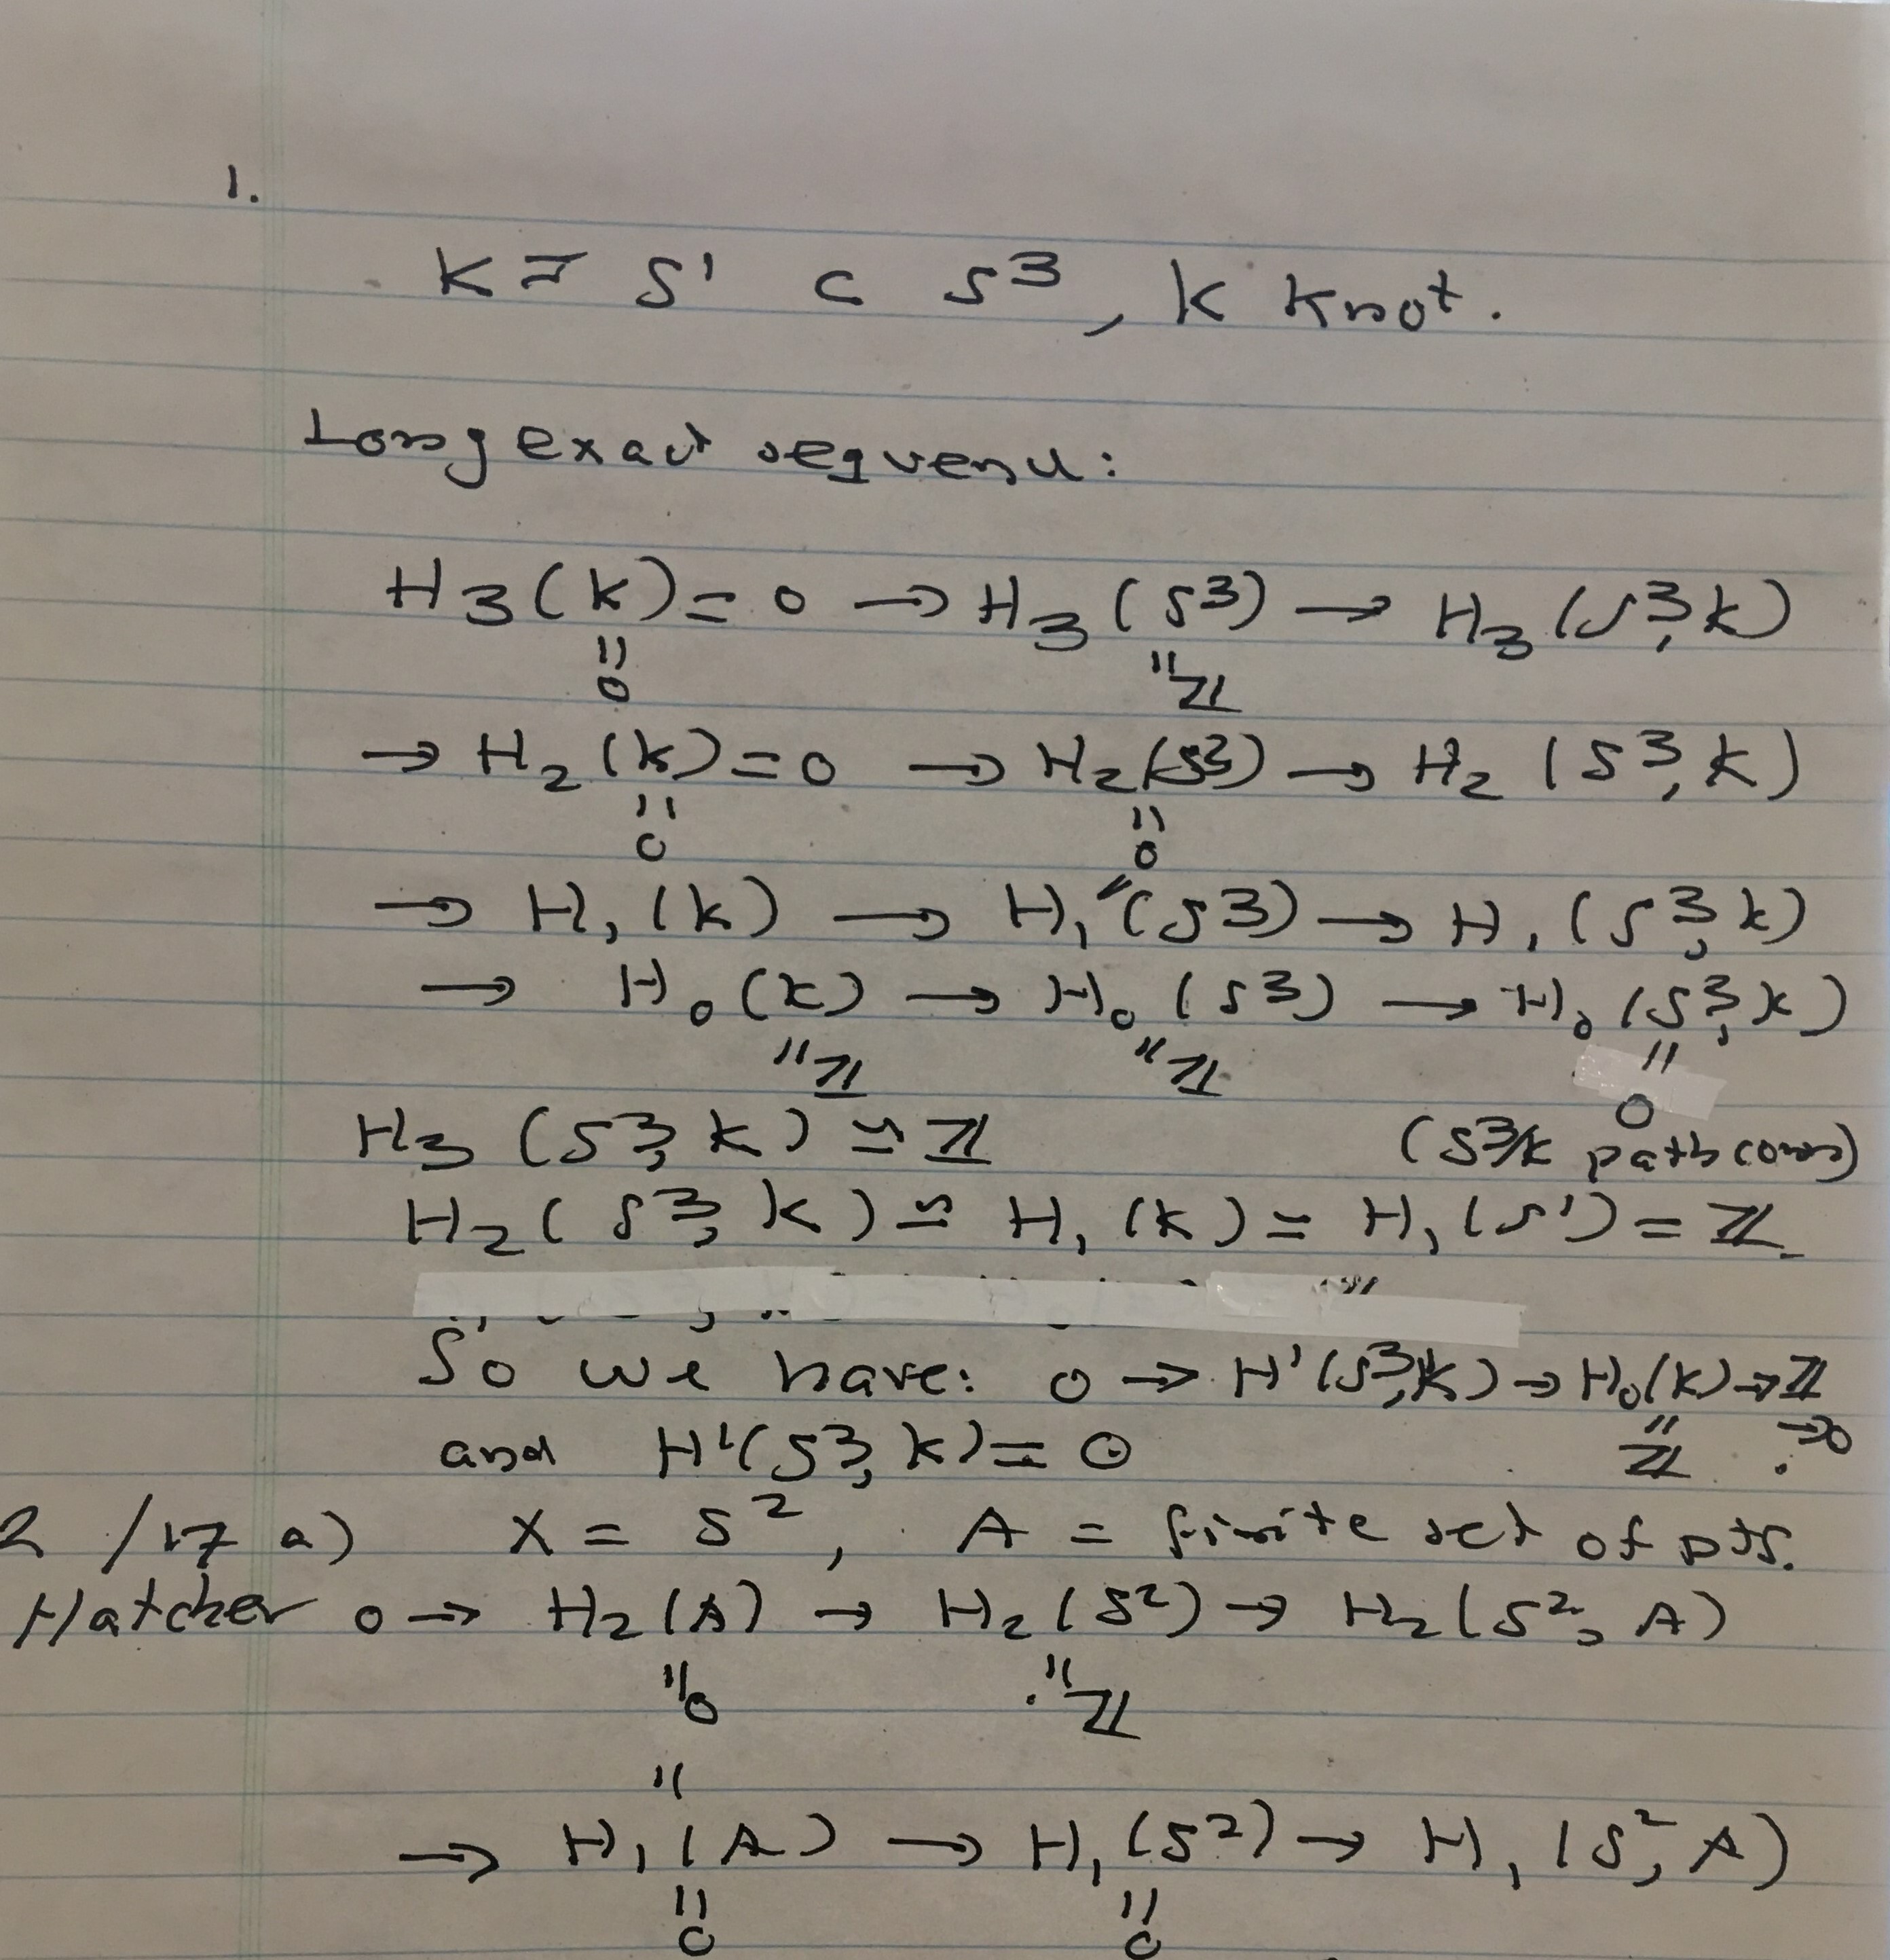 1.
K ≅ S¹ ⊂ S³, K Knot.
Long exact sequence:
H₃(K) = 0 → H₃(S³) → H₃(S³, K)
" 0 " ℤ
→ H₂(K) = 0 → H₂(S³) → H₂(S³, K)
" 0 " 0
→ H₁(K) → H₁(S³) → H₁(S³, K)
→ H₀(K) → H₀(S³) → H₀(S³, K)
" ℤ " ℤ " 0
H₃(S³, K) ≅ ℤ (S³/K path conn)
H₂(S³, K) ≅ H₁(K) = H₁(S¹) = ℤ
So we have: 0 → H¹(S³, K) → H₀(K) → ℤ
" ℤ → 0
and H¹(S³, K) = 0
2 / 17 a) X = S², A = finite set of pts.
Hatcher 0 → H₂(A) → H₂(S²) → H₂(S², A)
" 0 " ℤ
"
→ H₁(A) → H₁(S²) → H₁(S², A)
" 0 " 0